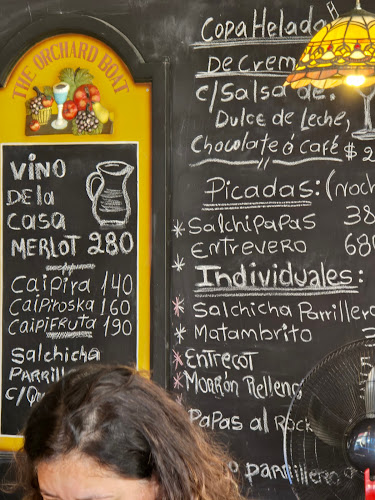 THE ORCHARD BOAT
Vino
De la
Casa
Merlot 280
Caipira 140
Caipiroska 160
Caipifruta 190
Salchicha
Parrill
Copa Helada
De Crema
c/Salsa de:
Dulce de Leche,
Chocolate ó Café $2
Picadas: (Noch
*Salchipapas 38
*Entrevero 680
Individuales:
*Salchicha Parrillera
*Matambrito
*Entrecot
*Morrón Relleno
*Papas al Rock
parrillero